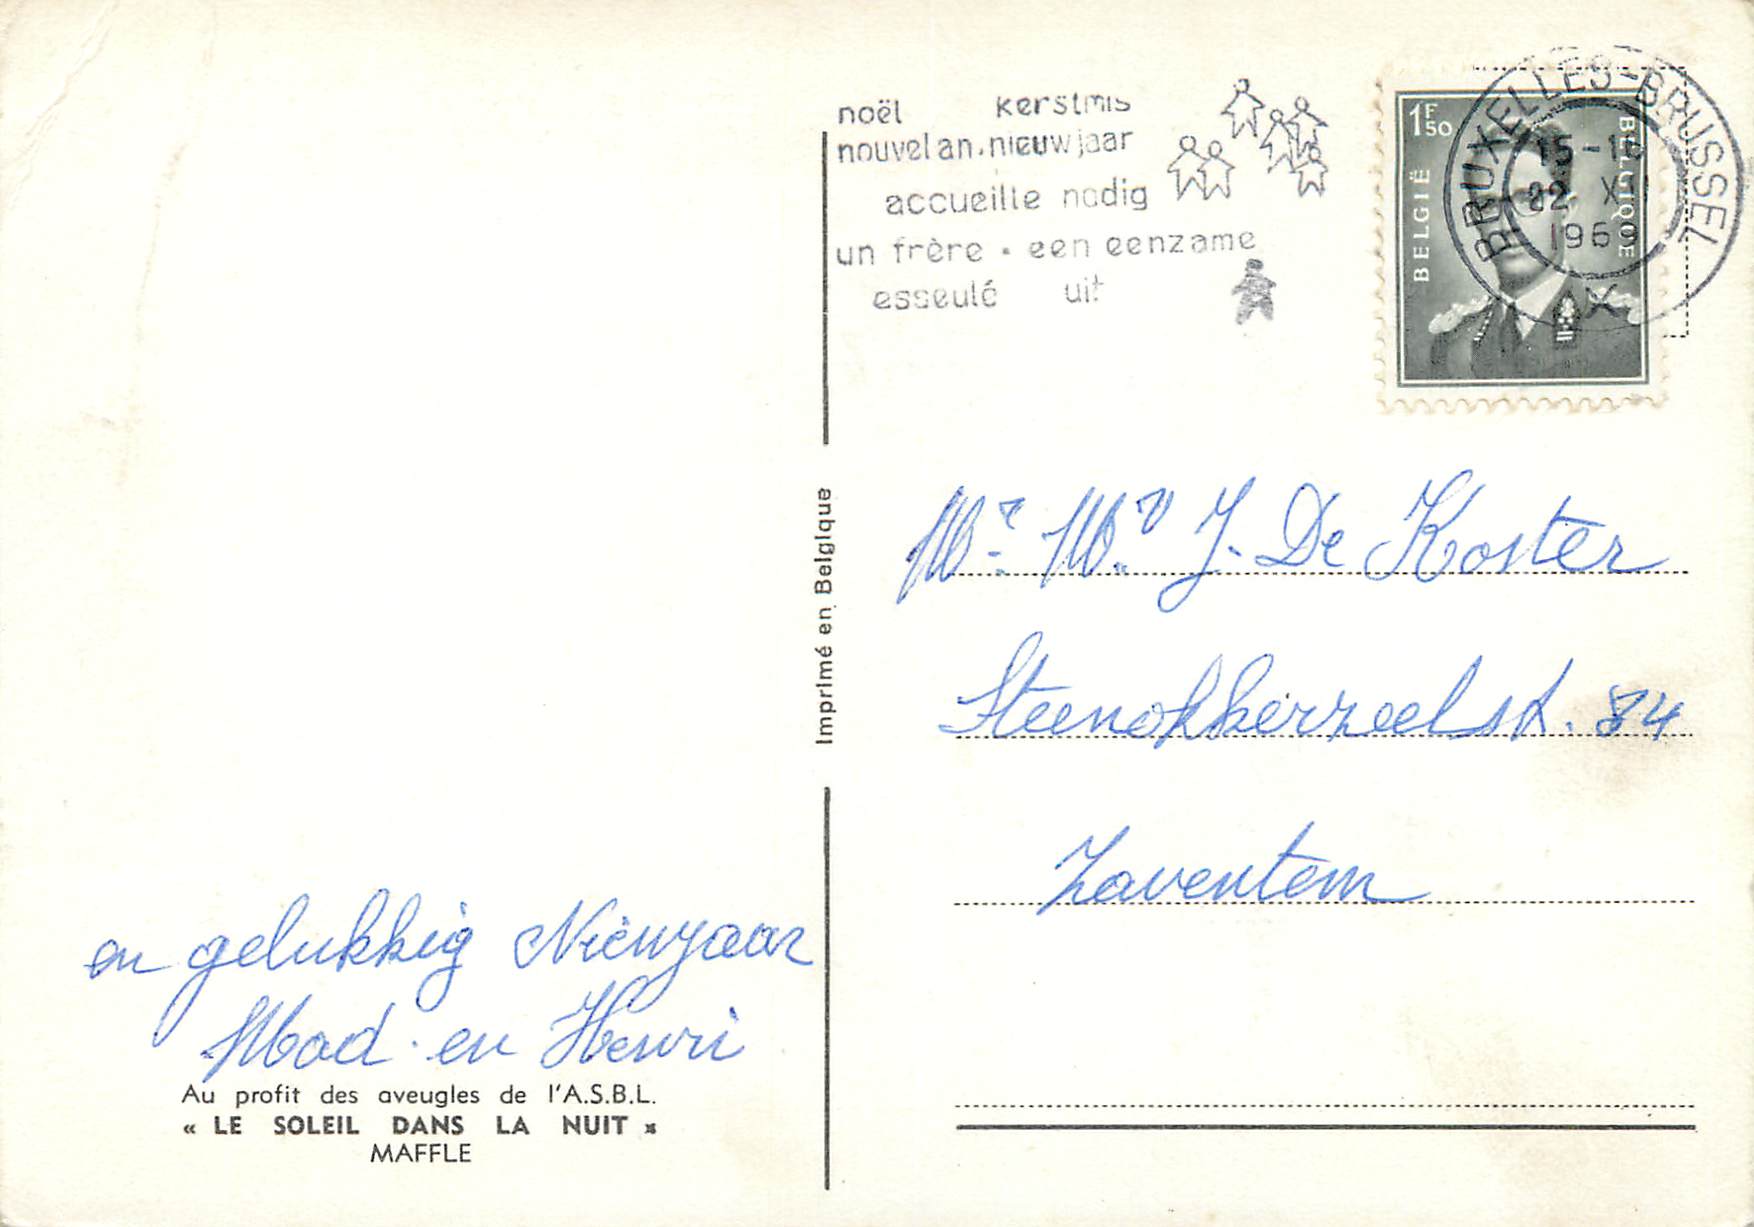 noël kerstmis
nouvel an. nieuwjaar
accueille nodig
un frère • een eenzame
esseulé uit
1F50
BELGIË
BELGIQUE
BRUXELLES-BRUSSEL
15-1
1969
X
Imprimé en Belgique
Mr. Mv. J. De Koster
Steenokkerzeelst. 84
Zaventem
en gelukkig Nieuwjaar
Mad. en Henri
Au profit des aveugles de l'A.S.B.L.
« LE SOLEIL DANS LA NUIT »
MAFFLE